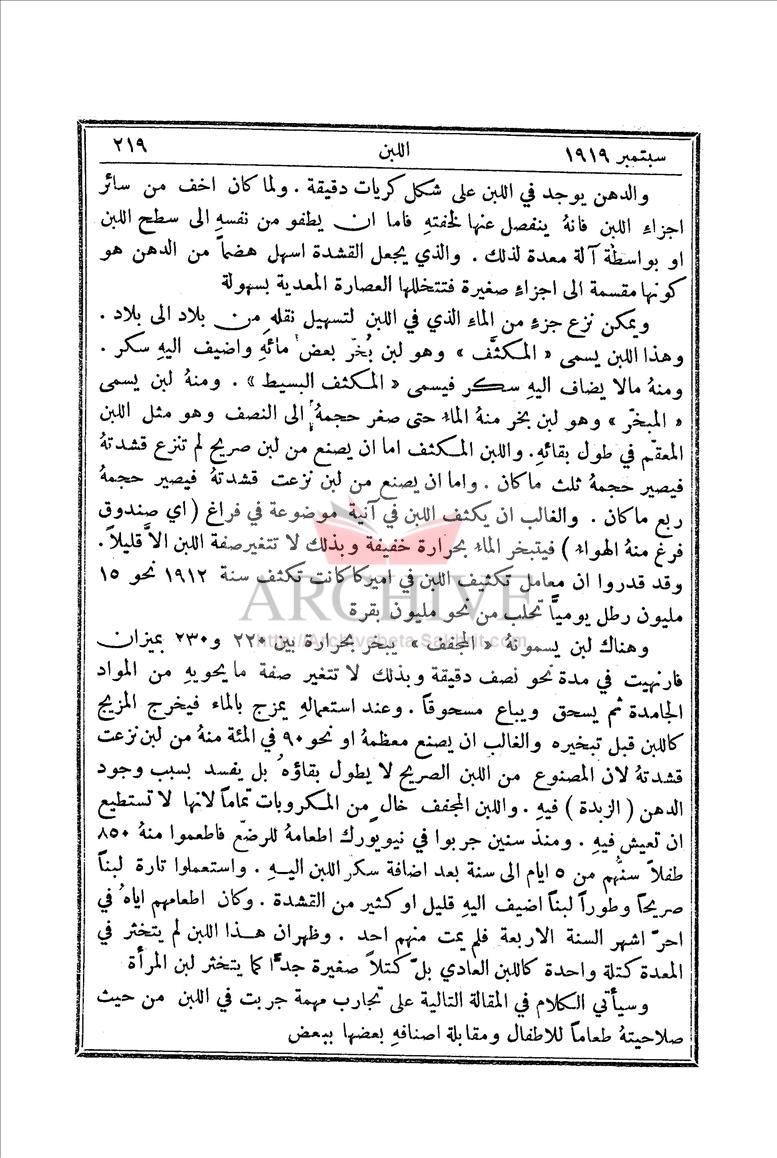 سبتمبر ١٩١٩ اللبن ٢١٩
والدهن يوجد في اللبن على شكل كريات دقيقة . ولما كان اخف من سائر
اجزاءِ اللبن فانهُ ينفصل عنها لخفتهِ فاما ان يطفو من نفسهِ الى سطح اللبن
او بواسطة آلة معدة لذلك . والذي يجعل القشدة اسهل هضماً من الدهن هو
كونها مقسمة الى اجزاءٍ صغيرة فتتخللها العصارة المعدية بسهولة
ويمكن نزع جزءٍ من الماءِ الذي في اللبن لتسهيل نقلهِ من بلاد الى بلاد .
وهذا اللبن يسمى « المكثَّف » وهو لبن بُخّر بعض مائهِ واضيف اليهِ سكر .
ومنهُ مالا يضاف اليهِ سكر فيسمى « المكثف البسيط » . ومنهُ لبن يسمى
« المبخّر » وهو لبن بخر منهُ الماءُ حتى صغر حجمهُ الى النصف وهو مثل اللبن
المعقّم في طول بقائهِ. واللبن المكثف اما ان يصنع من لبن صريح لم تنزع قشدتهُ
فيصير حجمهُ ثلث ماكان . واما ان يصنع من لبن نزعت قشدتهُ فيصير حجمهُ
ربع ماكان . والغالب ان يكثف اللبن في آنية موضوعة في فراغ ( اي صندوق
فرغ منهُ الهواء ) فيتبخر الماءُ بحرارة خفيفة وبذلك لا تتغير صفة اللبن الاَّ قليلاً.
وقد قدروا ان معامل تكثيف اللبن في اميركا كانت تكثف سنة ١٩١٢ نحو ١٥
مليون رطل يوميًّا تحلب من نحو مليون بقرة
وهناك لبن يسمونهُ « المجفف » يبخر بحرارة بين ٢٢٠ و٢٣٠ بميزان
فارنهيت في مدة نحو نصف دقيقة وبذلك لا تتغير صفة ما يحويهِ من المواد
الجامدة ثم يسحق ويباع مسحوقاً . وعند استعمالهِ يمزج بالماء فيخرج المزيج
كاللبن قبل تبخيره والغالب ان يصنع معظمهُ او نحو ٩٠ في المئة منهُ من لبن نزعت
قشدتهُ لان المصنوع من اللبن الصريح لا يطول بقاؤهُ بل يفسد بسبب وجود
الدهن ( الزبدة ) فيهِ . واللبن المجفف خال من المكروبات تماماً لانها لا تستطيع
ان تعيش فيهِ . ومنذ سنين جربوا في نيويورك اطعامهُ للرضّع فاطعموا منهُ ٨٥٠
طفلاً سنُّهم من ٥ ايام الى سنة بعد اضافة سكر اللبن اليهِ . واستعملوا تارة لبناً
صريحاً وطوراً لبناً اضيف اليهِ قليل او كثير من القشدة . وكان اطعامهم اياهُ في
احرّ اشهر السنة الاربعة فلم يمت منهم احد . وظهر ان هذا اللبن لم يتخثر في
المعدة كتلة واحدة كاللبن العادي بل كتلاً صغيرة جدًّا كما يتخثر لبن المرأة
وسيأتي الكلام في المقالة التالية على تجارب مهمة جربت في اللبن من حيث
صلاحيتهُ طعاماً للاطفال ومقابلة اصنافهِ بعضها ببعض
ARCHIVE
http://Archivebeta.Sakhrit.com